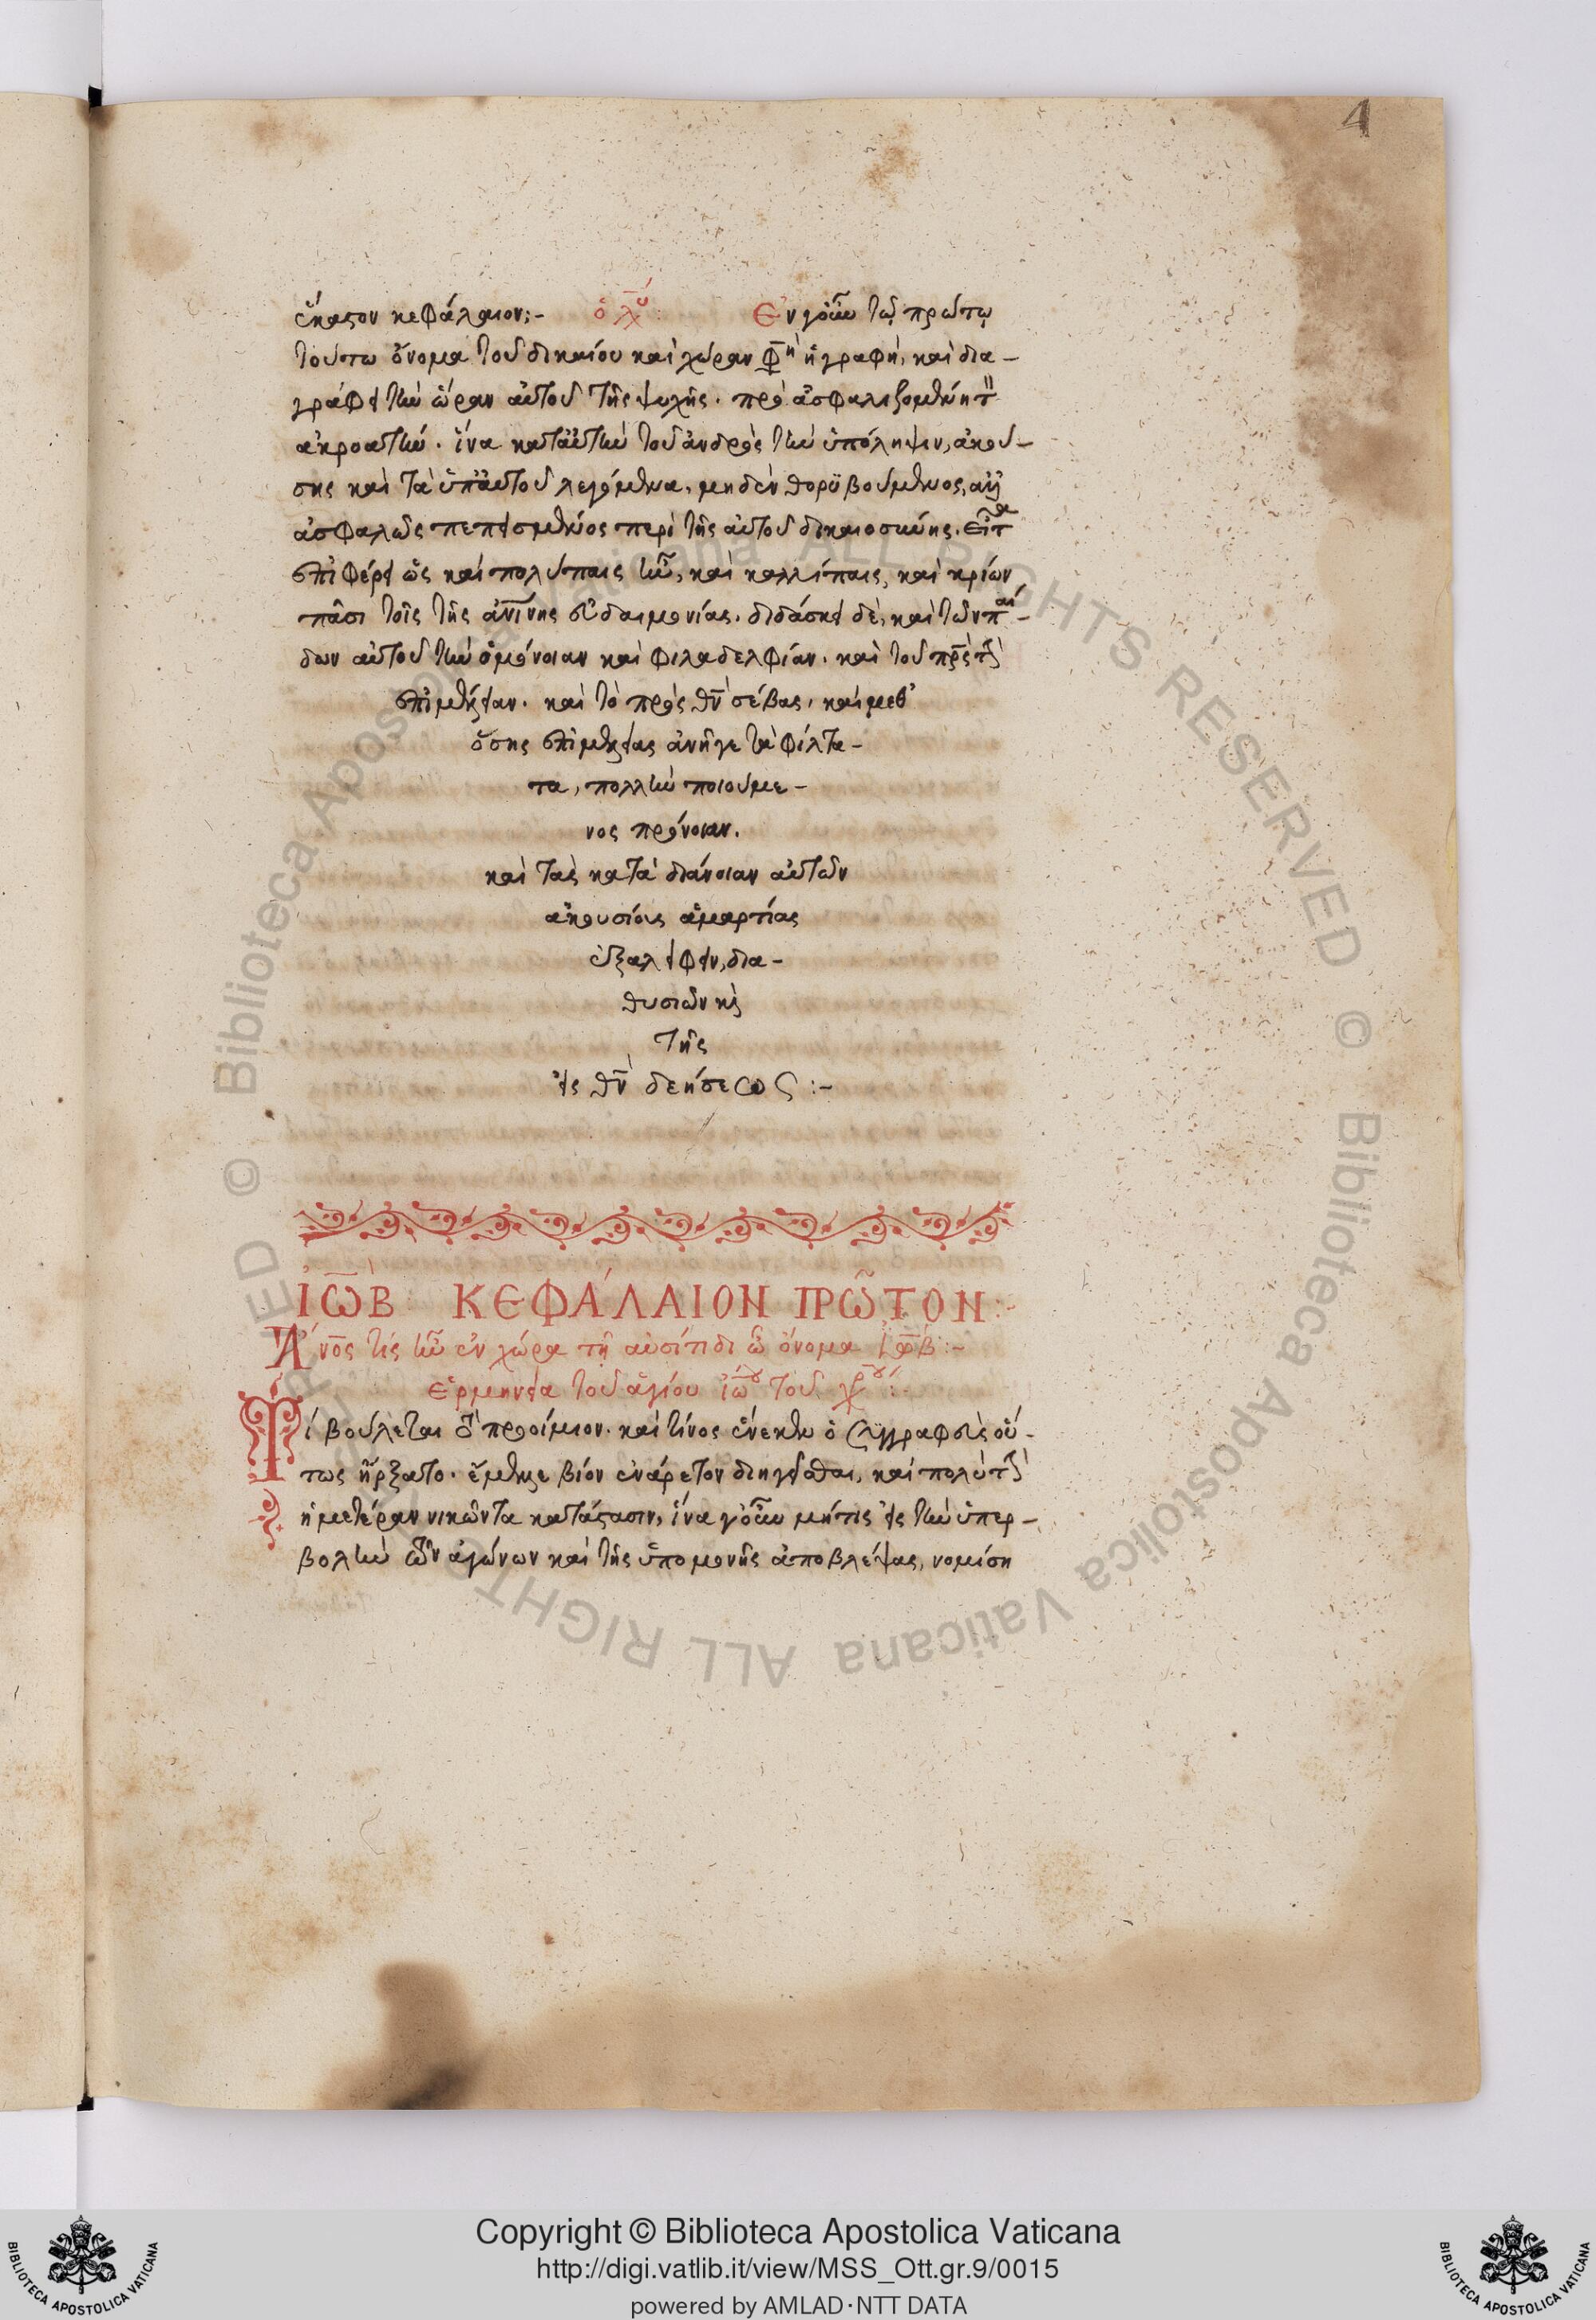 4
ἕκαστον κεφάλαιον:-
Ἐν γοῦν τῷ πρώτῳ
τούτω ὄνομα τοῦ δικαίου καὶ χώραν ἡ γραφὴ, καὶ δια-
γράφει τὴν ὥραν αὐτοῦ τῆς ψυχῆς. προ ἀσφαλιζομένη
ἀκροατὴν. ἵνα κατ' αὐτὴν τοῦ ἀνδρὸς τὴν ὑπόληψιν, ἀκού-
σης καὶ τὰ ὑπ' αὐτοῦ λεγόμενα, μηδὲν θορυβούμενος,
ἀσφαλῶς πεπεισμένος περὶ τῆς αὐτοῦ δικαιοσύνης. εἶτα
ἐπιφέρει ὡς καὶ πολύπαις ἦν, καὶ καλλίπαις, καὶ
πᾶσι τοῖς τῆς ἀνίνης εὐδαιμονίας. διδάσκει δὲ, καὶ τῶν παί-
δων αὐτοῦ τὴν ὁμόνοιαν καὶ φιλαδελφίαν. καὶ τοῦ πρς τὴν
ἐπιμέλειαν. καὶ τὸ πρὸς θν σέβας, καὶ μεθ'
ὅσης ἐπιμελείας ἀνῆγε τὰ φίλτα-
τα, πολλὴν ποιούμε-
νος πρόνοιαν.
καὶ τὰς κατὰ διάνοιαν αὐτῶν
ἀκουσίους ἁμαρτίας
ἐξαλείφειν, δια-
θυσιῶν καὶ
τῆς
εἰς θν δεήσεως:-
ἸὼΒ ΚΕΦΆΛΑΙΟΝ ΠΡῶΤΟΝ:-
Ἄνος τίς ἦν ἐν χώρα τῆ αὐσίτιδι ὧ ὄνομα ἰώβ:-
ἑρμηνεία τοῦ ἁγίου ἰω τοῦ χρ:-
Τί βούλεται τὸ προοίμιον. καὶ τίνος ἕνεκεν ὁ συγγραφεὺς οὕ-
τως ἤρξατο. ἔμελλε βίον ἐνάρετον διηγεῖσθαι, καὶ πολὺ τὴν
ἡμετέραν νικῶντα κατάστασιν, ἵνα γοῦν μήτις εἰς τὴν ὑπερ-
βολὴν τῶν ἀγώνων καὶ τῆς ὑπομονῆς ἀποβλέψας, νομίση
Copyright © Biblioteca Apostolica Vaticana
http://digi.vatlib.it/view/MSS_Ott.gr.9/0015
powered by AMLAD·NTT DATA